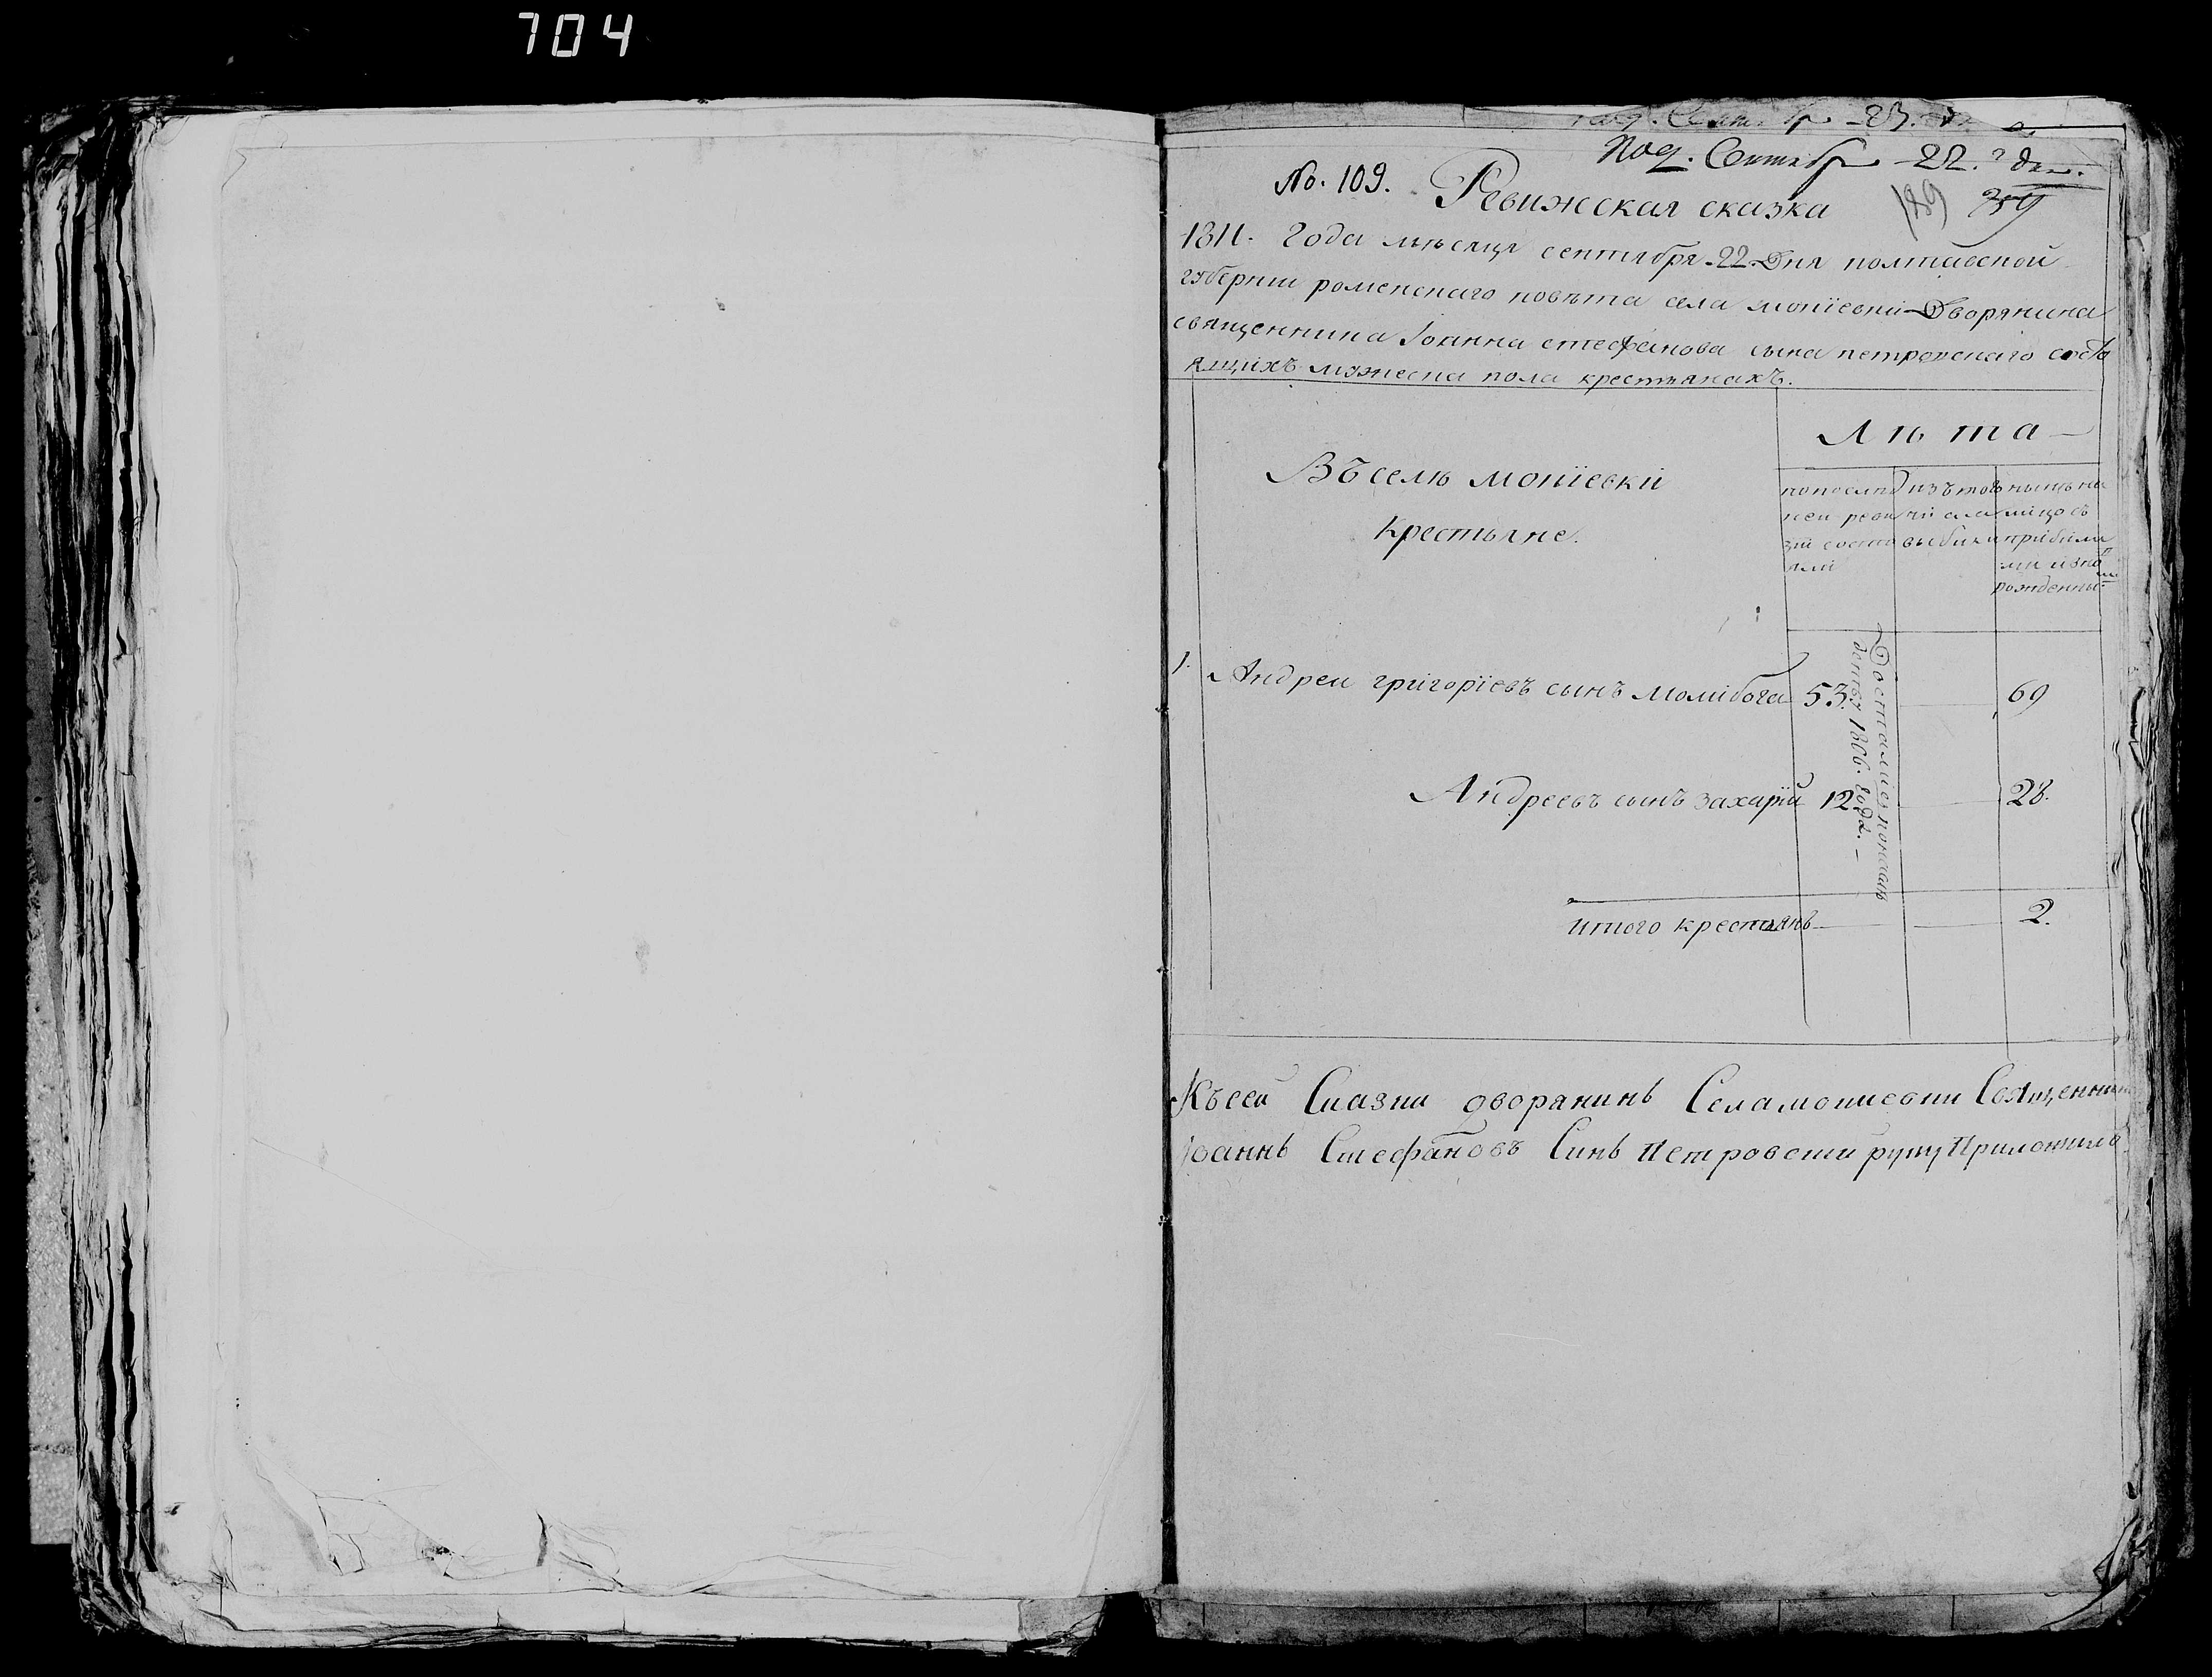 704
Под. Сентябр 22. г дня.
No. 109. Ревижская сказка
189 359
1811. Года мѣсяца сентября 22 Дня полтавской
губернии роменскаго повѣта села мокіевки Дворянина
священника Іоанна стефанова сына петровскаго состо
ящихъ мужеска пола крестьянахъ.
Лѣта
Въ селѣ мокіевки
крестьяне.
по послѣд
ней реви
зіи состо
яли
изъ того
числа
выбыли
нынѣ на
лицо съ
прибылы
ми и вно
рожденны
ми
1. Андреи григоріевъ сынъ молибога 53. 69
Досталися по
1806. года.
Андреевъ сынъ захарій 12 28.
итого крестьянъ 2.
Къ сей Сказки дворянинъ Села мокиевки Священник
Іоаннъ Стефановъ Синъ Петровски руку Приложилъ